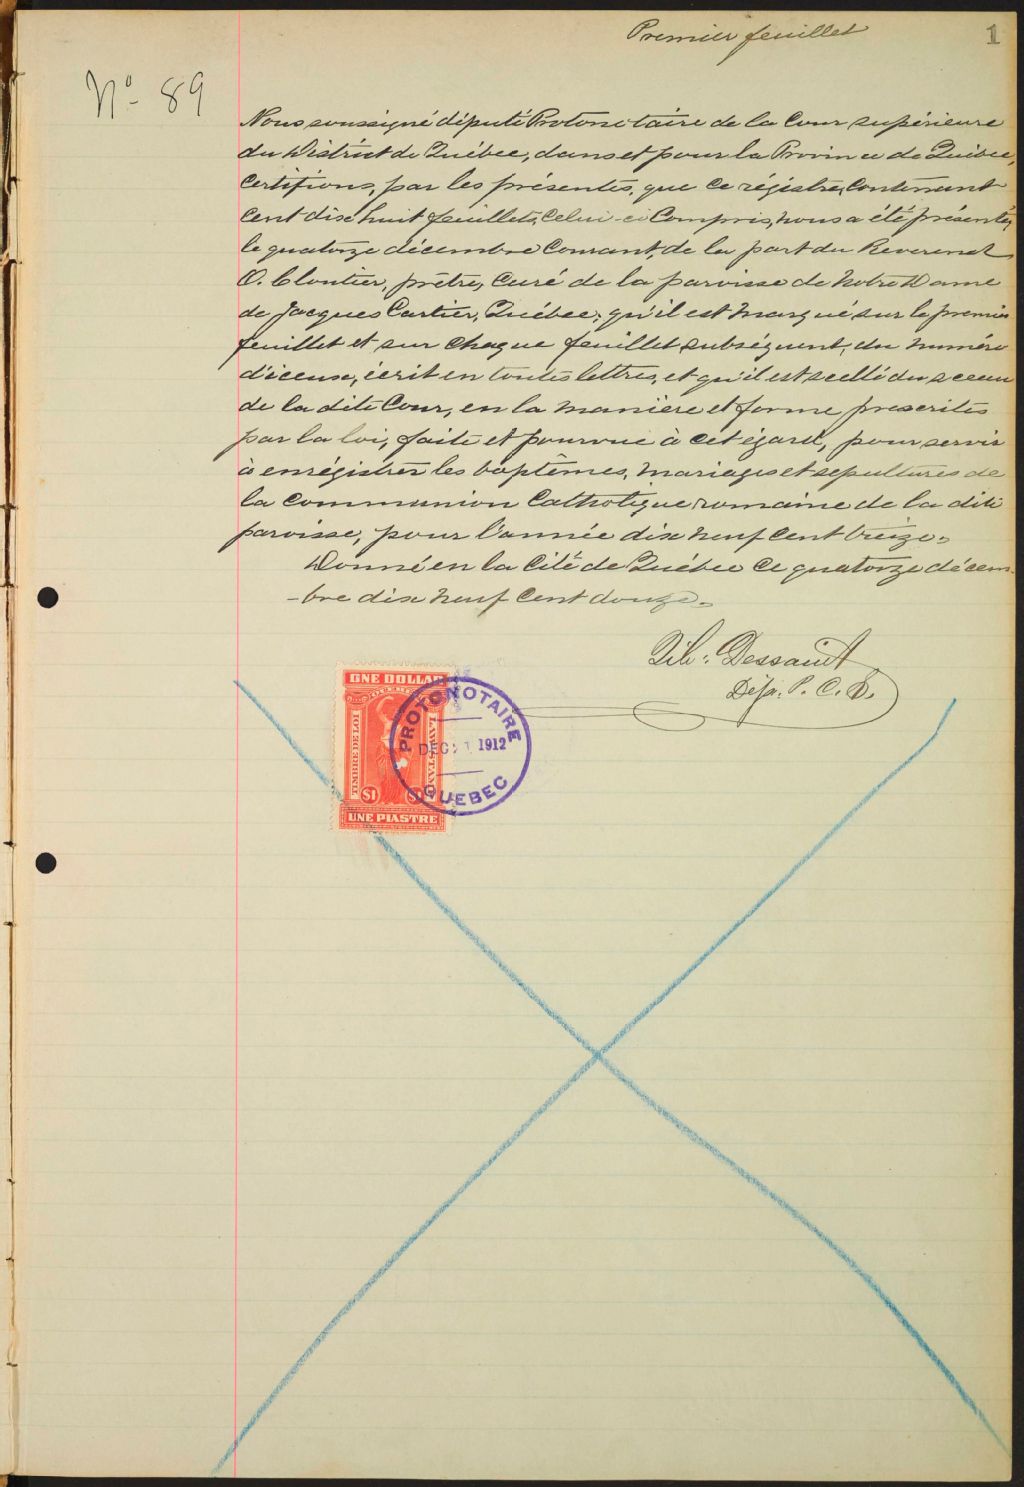 Premier feuillet
1
No 89
Nous soussigné député Protonotaire de la Cour supérieure
du District de Québec, dans et pour la Province de Québec,
Certifions, par les présentes, que ce régistre, Contenant
cent dix huit feuillets, Celui-ci Compris, nous a été présenté,
le quatorze décembre Courant, de la part du Reverend
O. Cloutier, prêtre, Curé de la paroisse de Notre Dame
de Jacques Cartier, Québec; qu'il est marqué sur le premier
feuillet et sur chaque feuillet subséquent, du numéro
d'icense, écrit en toutes lettres, et qu'il est scellé du sceau
de la dite Cour, en la manière et forme prescrites
par la loi, faite et pourvue à cet égard, pour servir
à enrégistrer les baptêmes, mariages et sépultures de
la Communion Catholique romaine de la dite
paroisse, pour l'année dix neuf cent treize.
Donné en la Cité de Québec ce quatorze décem-
-bre dix neuf Cent douze.
Dessaint
Dép. P. C. S.
ONE DOLLAR
QUEBEC
TIMBRE DE LOI
LAW STAMP
$1
UNE PIASTRE
PROTONOTAIRE
DEC 21 1912
QUEBEC